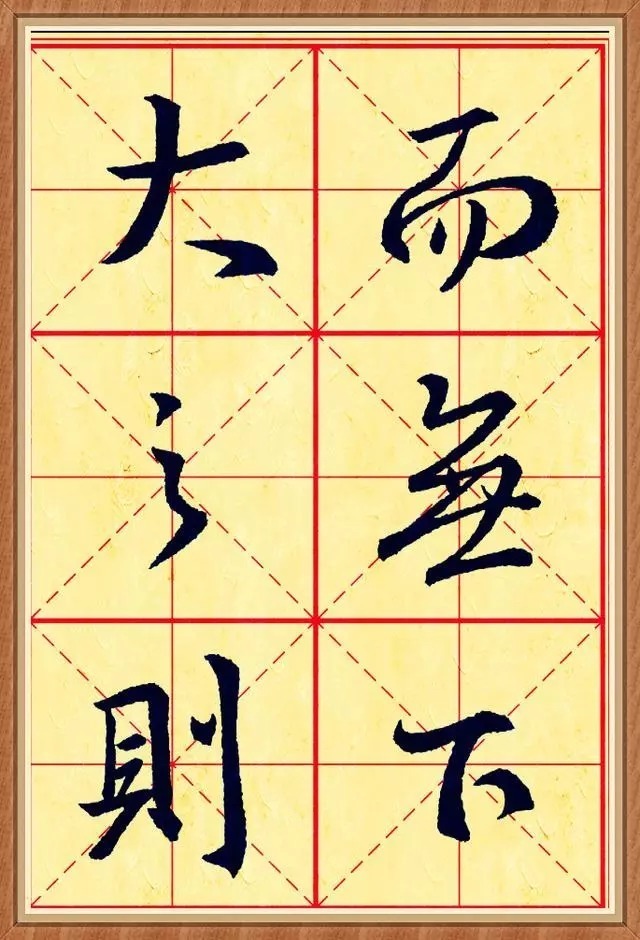 而無下
大之則